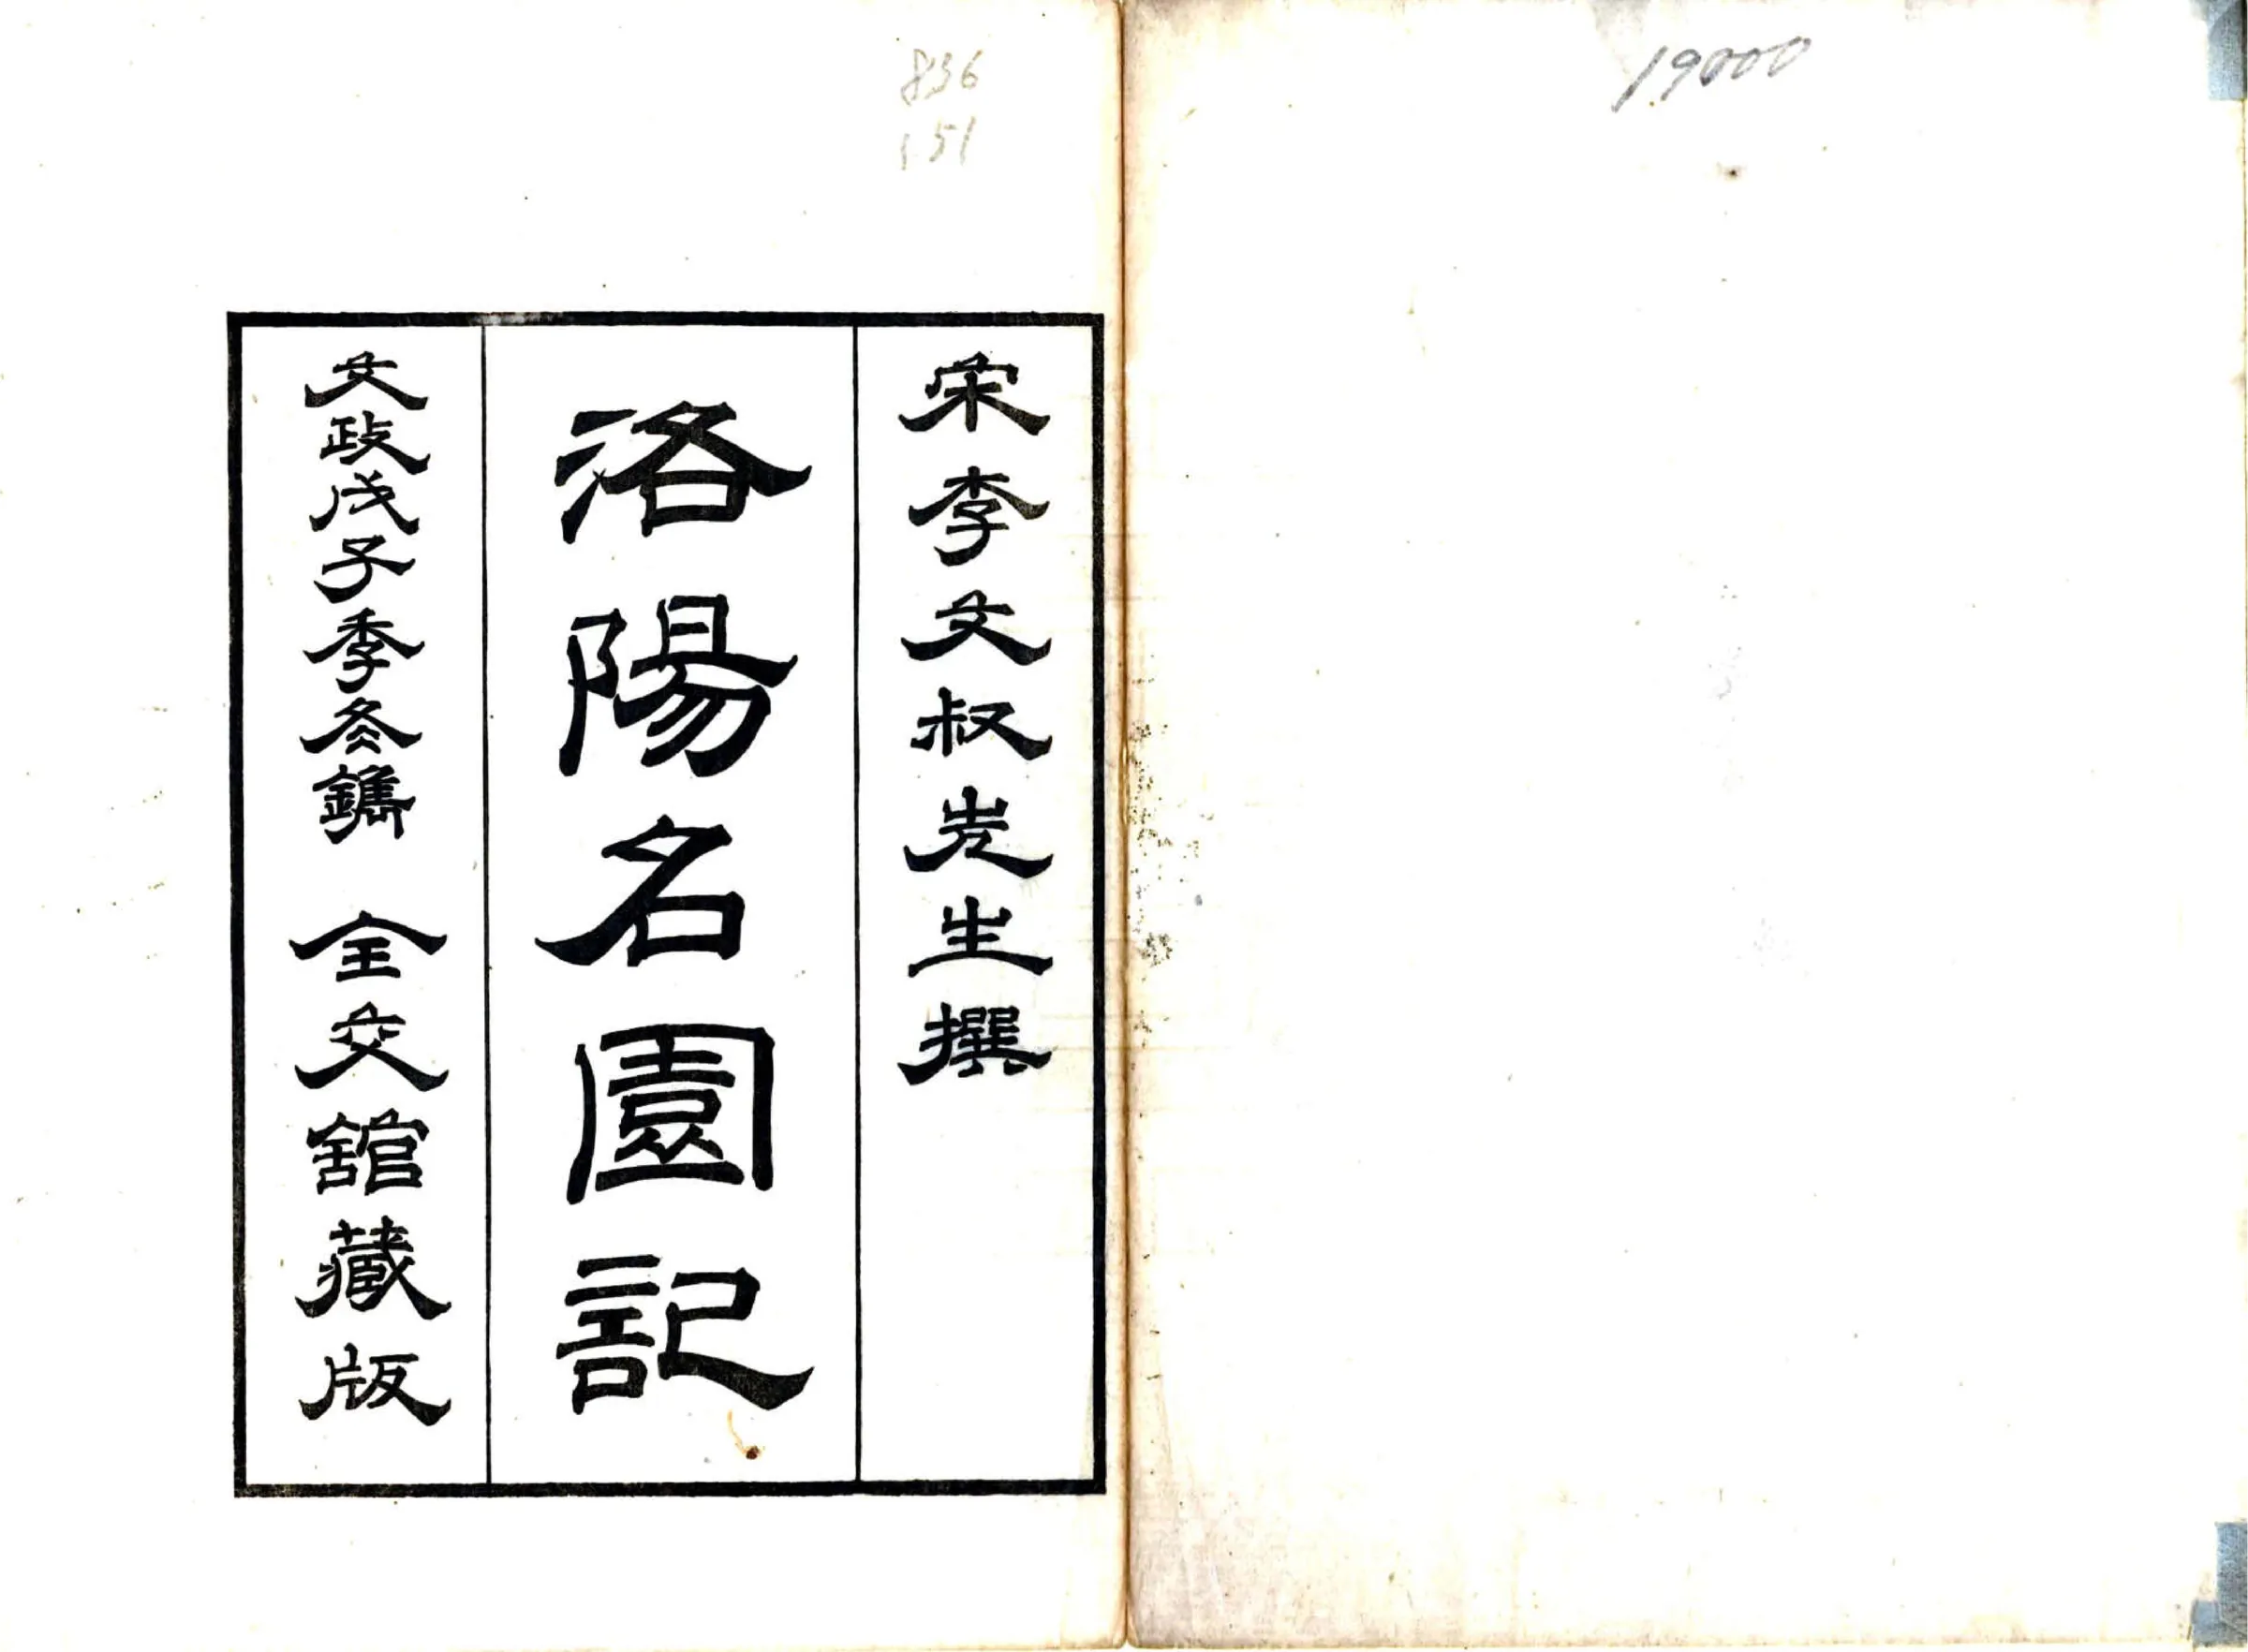 19000
836
151
宋李文叔先生撰
洛陽名園記
文政戊子季冬鐫 全交館藏版